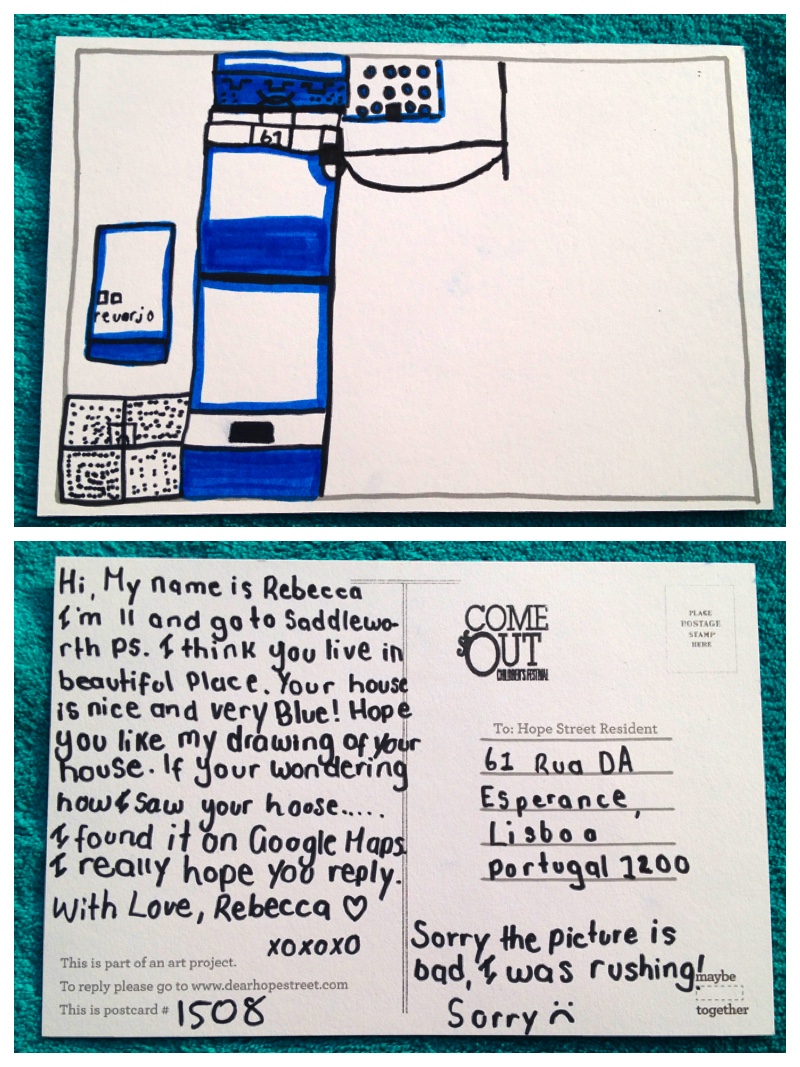 61
revarjo
Hi, My name is Rebecca
I'm 11 and go to Saddlewo-
rth PS. I think you live in
beautiful Place. Your house
is nice and very Blue! Hope
you like my drawing of your
house. If your wondering
how I saw your hoose.....
I found it on Google Maps
I really hope you reply.
With Love, Rebecca ♡
xoxoxo
This is part of an art project.
To reply please go to www.dearhopestreet.com
This is postcard # 1508
COME
OUT
CHILDREN'S FESTIVAL
PLACE
POSTAGE
STAMP
HERE
To: Hope Street Resident
61 Rua DA
Esperance,
Lisboa
Portugal 1200
Sorry the picture is
bad, I was rushing!
Sorry ☹
maybe
together